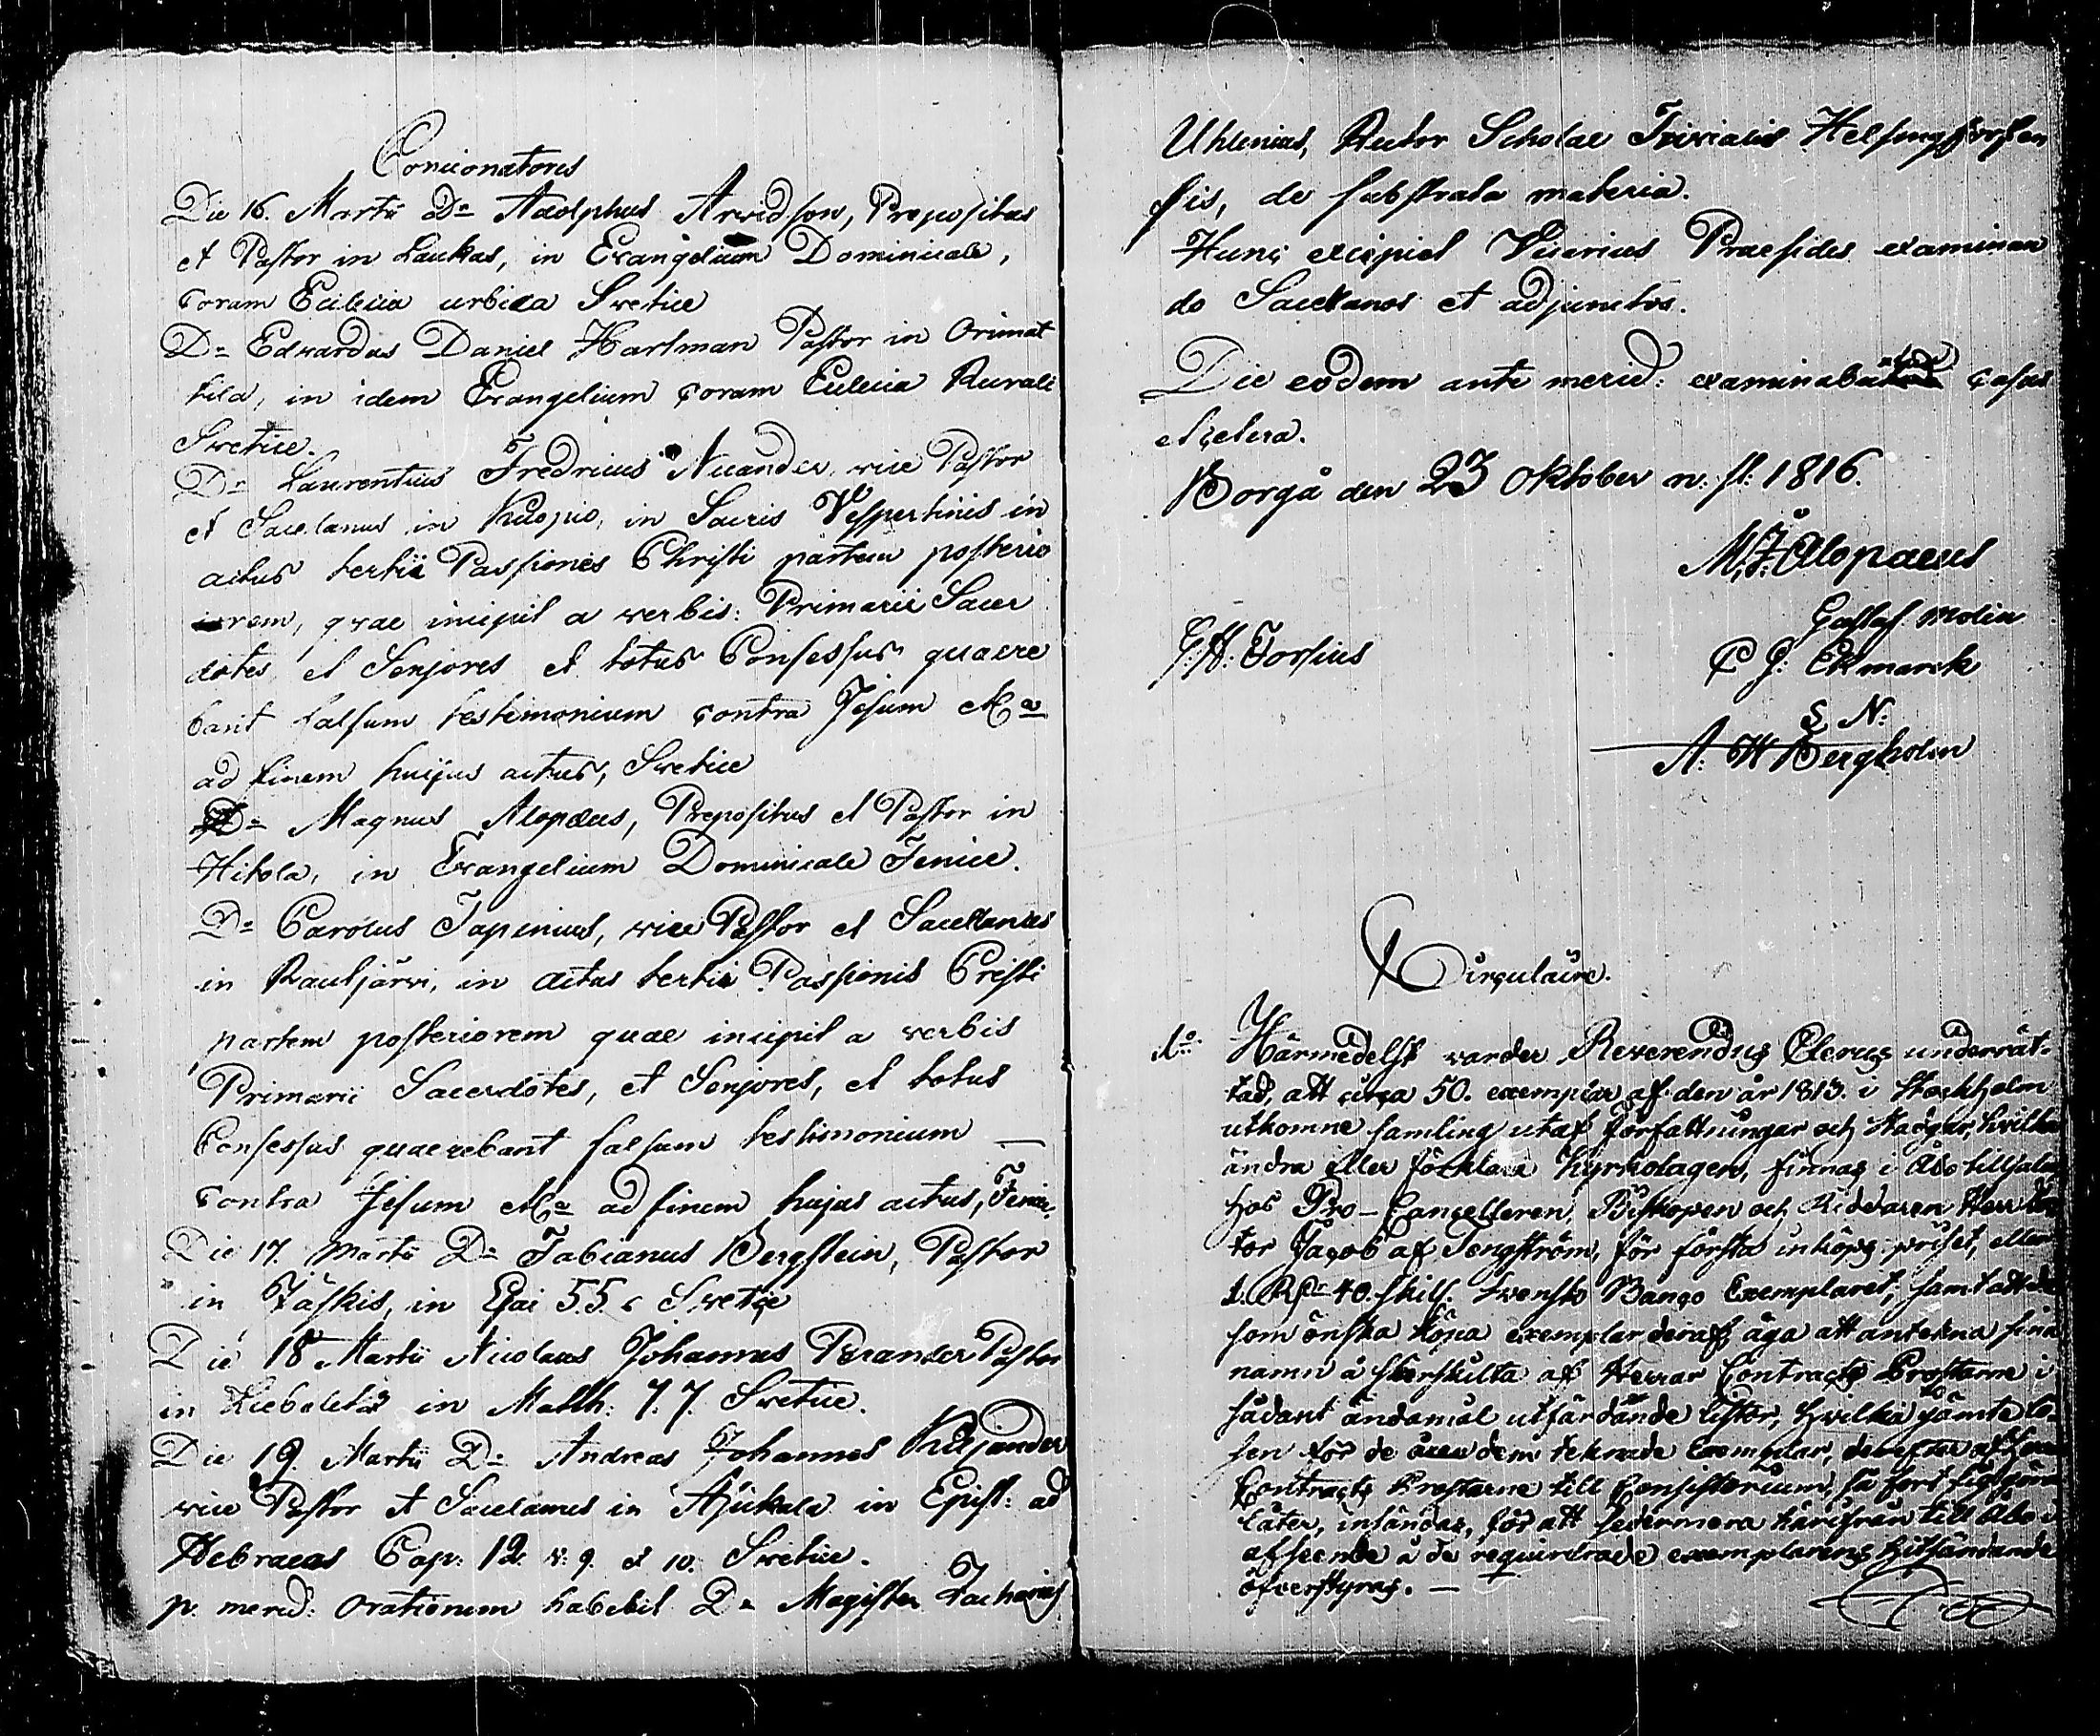 Concionatores
Die 16. Martii Dn Adolphus Arvidson, Prepositus
et Pastor in Laukas, in Evangelium Dominicale,
coram Eclecia urbica Svetice
Dn Edvardus Daniel Hartman Pastor in Orimat
tila, in idem Evangelium coram Eclecia Rurali
Svetice.
Dn Laurentius Fredricus Nicander, vice Pastor
et Sacelanus in Kuopio, in Sacris Vespertinis in
actus tertii Passiones Christi partem posterio
rem, qvae incipit a verbis: Primarii Sacer
dotes et Senjores et totus Consessus quaere
bant falsum testimonium contra Jesum
ad finem huijus actus, Svetice
Dn Magnus Alopæus, Prepositus et Pastor in
Hitola, in Evangelium Dominicale Fenice.
Dn Carolus Japenius, vice Pastor et Sacellanus
in Rautjärvi, in actus tertii Passionis Cristi
partem posteriorem quae incipit a verbis
Primarii Sacerdotes, et Senjores, et totus
Consessus quaerebant falsum testimonium —
contra Jesum ad finem hujus actus, Fenice.
Die 17. Martii Dn Fabianus Bergstein, Pastor
in Jäskis, in Esai 55. Svetice
Die 18 Martii Nicolaus Johannes Perander Pastor
in Liebelitz in Matth: 7. 7. Svetice.
Die 19. Martii Dn Andreas Johannes
vice Pastor et Sacelanus in in Epist: ad
Hebraeos Cap: 12. v: 9. et 10. Svetice.
p. merid: orationem habebit Dn Magister Zacharias
Uhlenius, Rector Scholae Trivialis Helsingforsen
sis, de substrata materia.
Hunc excipiet Vicarius Praesides examinan
do Sacellanos et adjunctos.
Die eodem ante merid: casus
etcetera.
Borgå den 23 Oktober n: st: 1816.
M: J: Alopaeus
Gustaf Molin
G: H: Forsius
C J: Ekmarck
S N:
A: W Bergholm
Circulaire.
1o Härmedelst varder Reverendus Clerus underrät-
tad, att circa 50. exemplar af den år 1813. i Stockholm
utkomne samling utaf författningar och stadgar, hvilka
ändra eller förklara Kyrkolagen, finnas i Åbo till salu
hos Pro-Cancelleren, Biskopen och Riddaren Herr Doc
tor Jacob af Tengström, för första inköps priset, eller
1. Rdr 40. skill. Svensk Banco Exemplaret, samt att de
som önska köpa exemplar deraf, äga att antekna sina
namn å särskilta af Herrar Contracts Prostarne i
sådant ändamål utfärdande listor, hvilka jämte lö-
sen för de dem teknade Exemplar, derefter af
Contracts Prostarne till Consistorium, så fort sig göra
låter, insändas, för att sedermera härifrån till Åbo i
afseende å de requirerade exemplarens hitsändande
öfverstyras. —